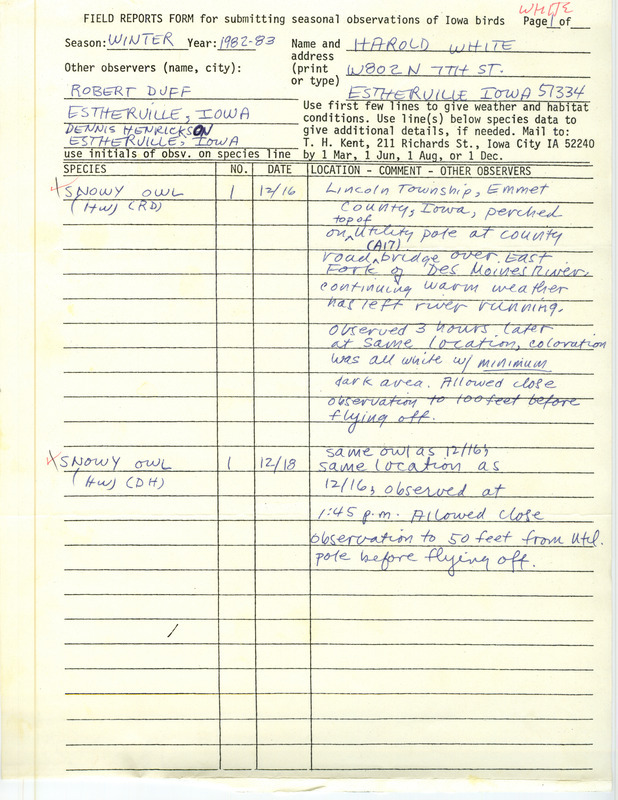 WHITE
FIELD REPORTS FORM for submitting seasonal observations of Iowa birds Page 1 of
Season: WINTER Year: 1982-83
Name and address (print or type)
HAROLD WHITE
W802 N 7TH ST.
ESTHERVILLE IOWA 51334
Other observers (name, city):
ROBERT DUFF
ESTHERVILLE, IOWA
DENNIS HENRICKSON
ESTHERVILLE, IOWA
use initials of obsv. on species line
Use first few lines to give weather and habitat
conditions. Use line(s) below species data to
give additional details, if needed. Mail to:
T. H. Kent, 211 Richards St., Iowa City IA 52240
by 1 Mar, 1 Jun, 1 Aug, or 1 Dec.
SPECIES NO. DATE LOCATION - COMMENT - OTHER OBSERVERS
x SNOWY OWL 1 12/16 Lincoln Township, Emmet
(HW) (RD) County, Iowa, perched
on ^top of utility pole at county
road ^(A17) bridge over East
Fork of Des Moines River,
continuing warm weather
has left river running.
Observed 3 hours later
at same location, coloration
was all white w/ minimum
dark area. Allowed close
observation to 100 feet before
flying off.
x SNOWY OWL 1 12/18 same owl as 12/16;
(HW) (DH) same location as
12/16; observed at
1:45 p.m. Allowed close
observation to 50 feet from util.
pole before flying off.
/